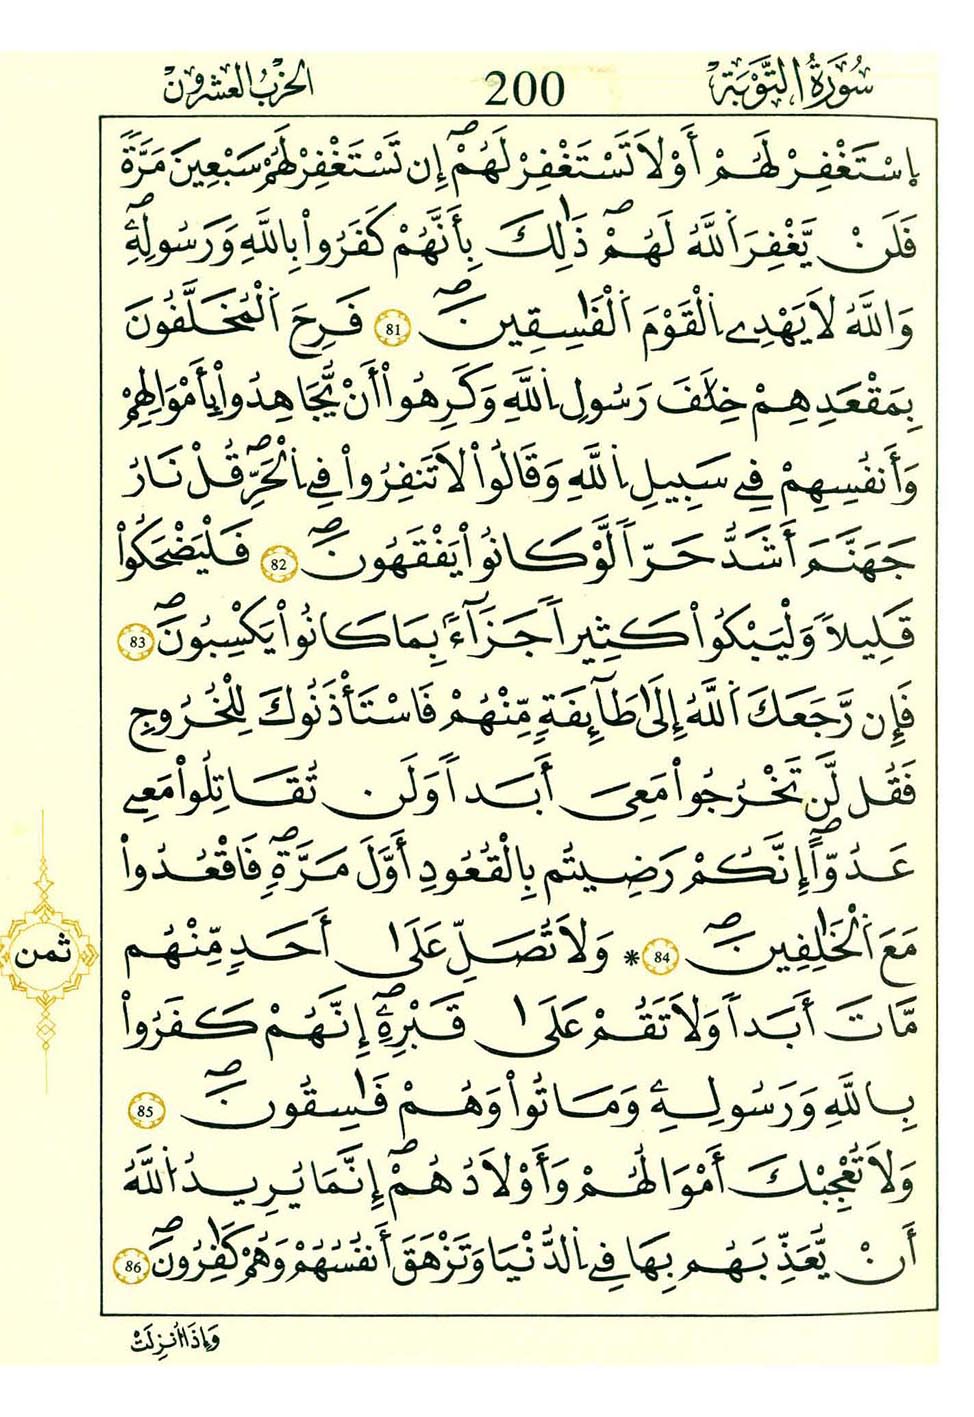 سُورَةُ التَّوْبَةِ 200 الحِزْبُ العِشْرُونَ
اِسْتَغْفِرْ لَهُمْ أَوْ لَا تَسْتَغْفِرْ لَهُمْ إِن تَسْتَغْفِرْ لَهُمْ سَبْعِينَ مَرَّةً
فَلَنْ يَّغْفِرَ اَللَّهُ لَهُمْ ذَٰلِكَ بِأَنَّهُمْ كَفَرُواْ بِاللَّهِ وَرَسُولِهِۦ
وَاللَّهُ لَا يَهْدِے اِلْقَوْمَ اَلْفَٰسِقِينَ 81 فَرِحَ اَلْمُخَلَّفُونَ
بِمَقْعَدِهِمْ خِلَٰفَ رَسُولِ اِللَّهِ وَكَرِهُواْ أَنْ يُّجَاهِدُواْ بِأَمْوَالِهِمْ
وَأَنفُسِهِمْ فِے سَبِيلِ اِللَّهِ وَقَالُواْ لَا تَنفِرُواْ فِے اِلْحَرِّ قُلْ نَارُ
جَهَنَّمَ أَشَدُّ حَرّاً لَّوْ كَانُواْ يَفْقَهُونَ 82 فَلْيَضْحَكُواْ
قَلِيلاً وَلْيَبْكُواْ كَثِيراً جَزَآءَۢ بِمَا كَانُواْ يَكْسِبُونَ 83
فَإِن رَّجَعَكَ اَللَّهُ إِلَىٰ طَآئِفَةٍ مِّنْهُمْ فَاسْتَأْذَنُوكَ لِلْخُرُوجِ
فَقُل لَّن تَخْرُجُواْ مَعِىَ أَبَداً وَلَن تُقَٰتِلُواْ مَعِے
عَدُوّاً إِنَّكُمْ رَضِيتُم بِالْقُعُودِ أَوَّلَ مَرَّةٍ فَاقْعُدُواْ
مَعَ اَلْخَٰلِفِينَ 84 * وَلَا تُصَلِّ عَلَىٰ أَحَدٍ مِّنْهُم
ثمن
مَّاتَ أَبَداً وَلَا تَقُمْ عَلَىٰ قَبْرِهِۦ إِنَّهُمْ كَفَرُواْ
بِاللَّهِ وَرَسُولِهِۦ وَمَاتُواْ وَهُمْ فَٰسِقُونَ 85
وَلَا تُعْجِبْكَ أَمْوَالُهُمْ وَأَوْلَادُهُمْ إِنَّمَا يُرِيدُ اُللَّهُ
أَنْ يُّعَذِّبَهُم بِهَا فِے اِلدُّنْيَا وَتَزْهَقَ أَنفُسُهُمْ وَهُمْ كَٰفِرُونَ 86
وَإِذَا أُنزِلَتْ